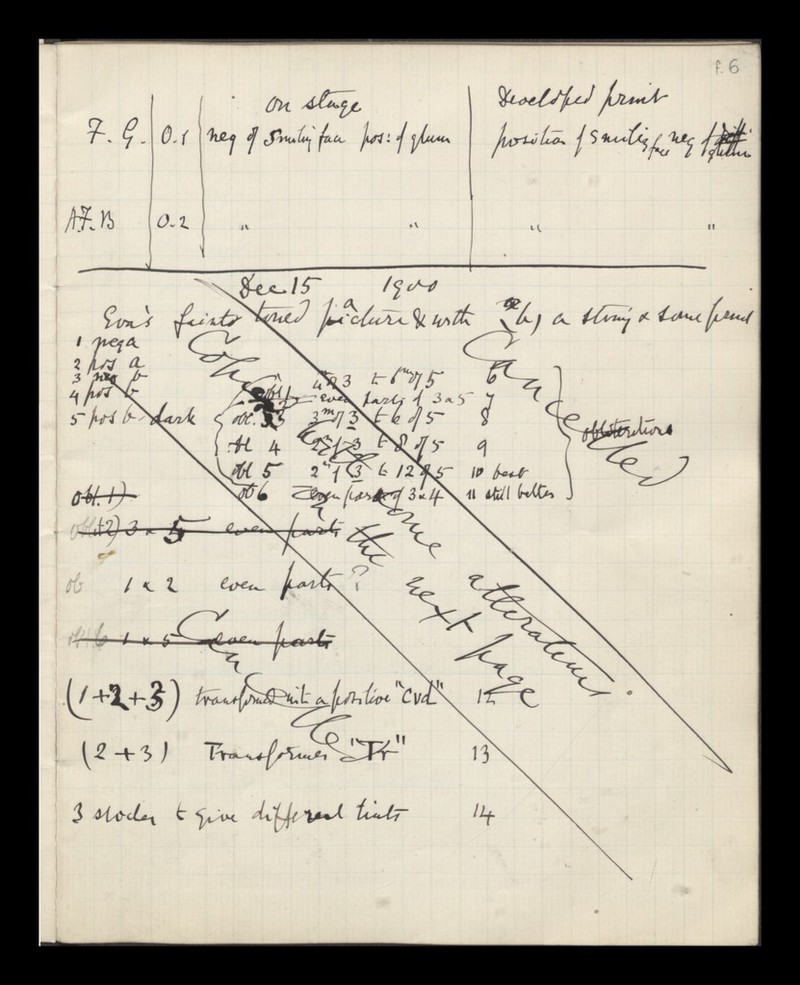 f. 6
on stage Developed print
F. G. 0.1 neg of smiling face pos: of glum position of smiling face neg of glum
A.F.B 0.2 " " " "
Dec 15 1900
Eva's faintly toned picture & with a strong & some print
1 neg a
2 pos a
3 neg b 3 to 6 of 5 6
4 pos b obl even parts of 3 & 5 7
5 pos b dark obl. 3 of 3 to 6 of 5 8 obliterations
obl 4 of 3 to 8 of 5 9
obl 5 2 of 3 to 12 of 5 10 best
obl. 1) ob 6 even parts of 3 & 4 11 still better
3 & 5 even parts
ob 1 & 2 even parts ?
1 & 5 even parts
(1+2+3) transformed into a positive "Cvd" 12
(2+3) Transformer "Tr" 13
3 to give different tints 14
Copied with some alterations
on the next page
Cancelled
Cancelled